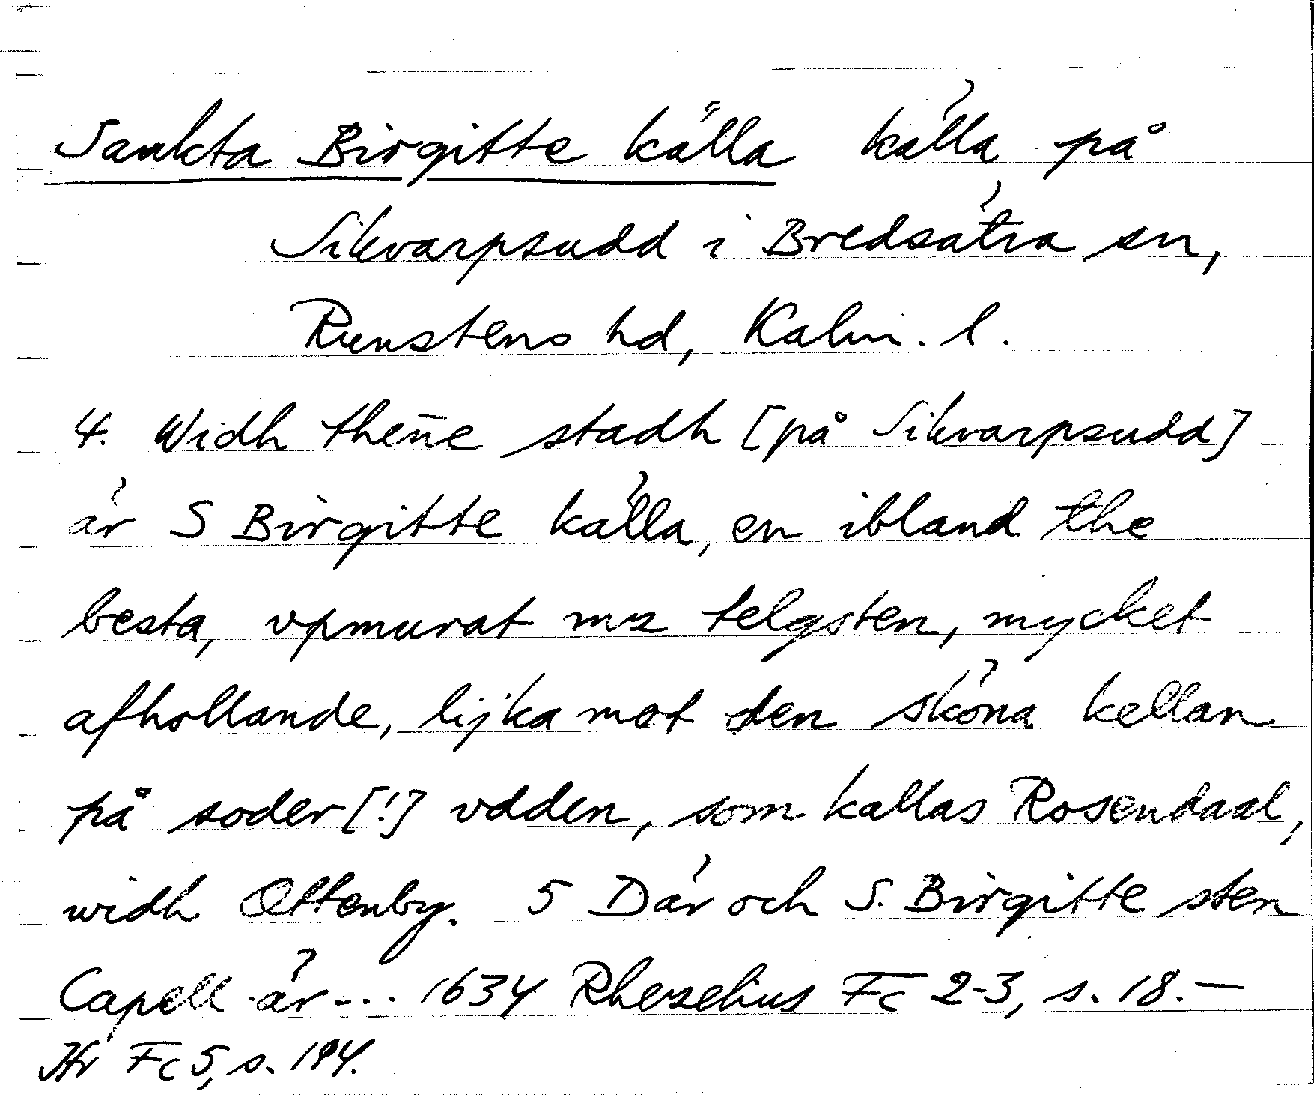 Sankta Birgitte källa källa på
Sikvarpsudd i Bredsätra sn,
Runstens hd, Kalm. l.
4. Widh then̄e stadh [på Sikvarpsudd]
är S Birgitte källa, en ibland the
besta, vpmurat mz telgsten, mycket
afhollande, lijka mot den sköna kellan
på soder [!] vdden, som kallas Rosendaal,
widh Ottenby. 5 Där och S. Birgitte sten
Capell är --- 1634 Rhezelius Fc 2-3, s. 18. —
Jfr Fc 5, s. 194.